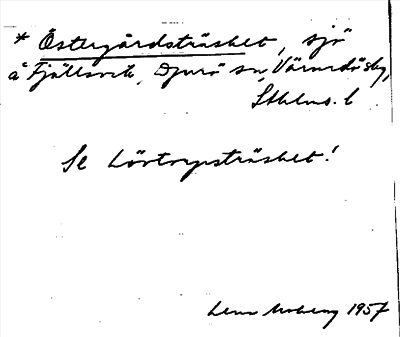 * Östergårdsträsket, sjö
å Fjällsvik, Djurö sn, Värmdö skg,
Sthlms. l
Se Lövtorpsträsket!
1957